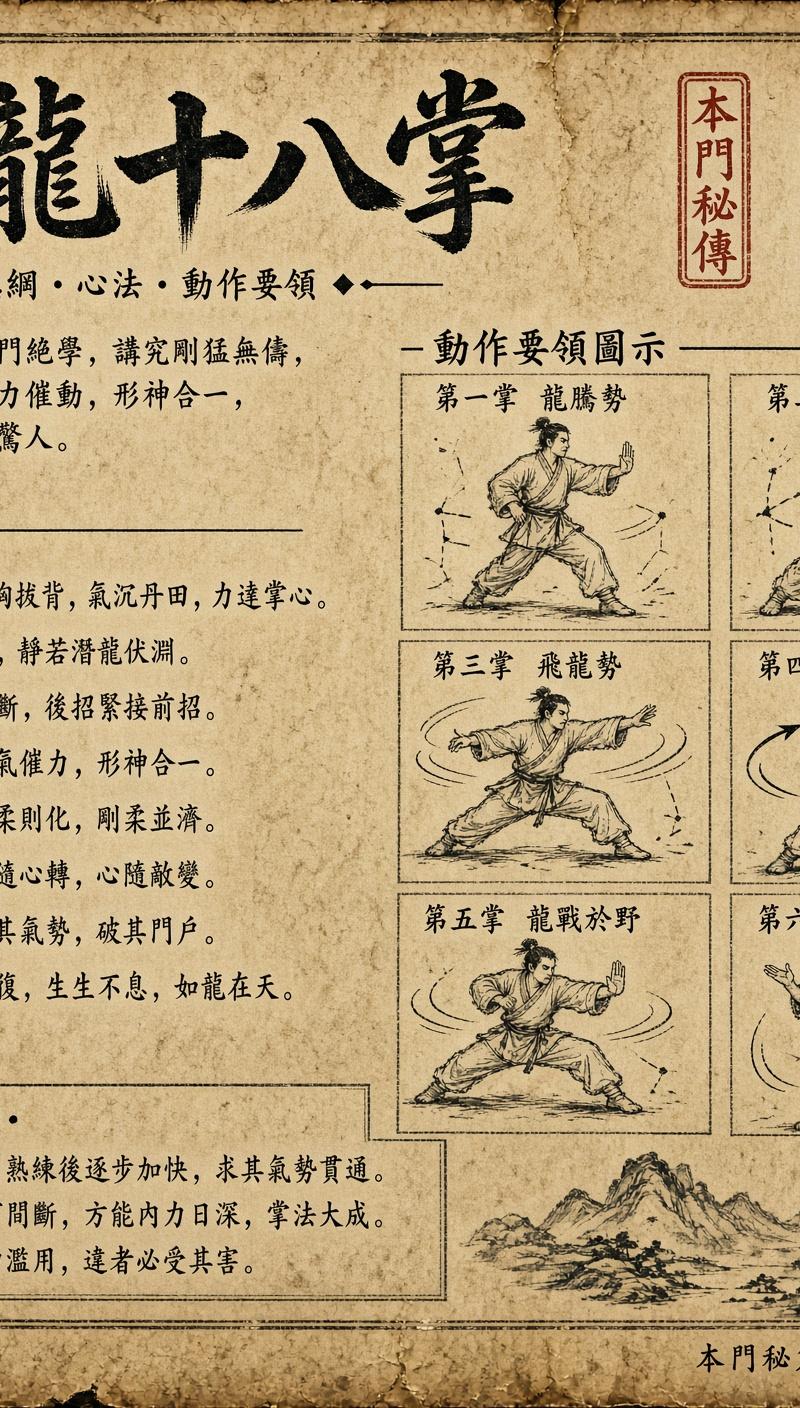 龍十八掌
本門秘傳
綱・心法・動作要領
門絶學，講究剛猛無儔，
力催動，形神合一，
驚人。
拔背，氣沉丹田，力達掌心。
，靜若潛龍伏淵。
斷，後招緊接前招。
氣催力，形神合一。
柔則化，剛柔並濟。
隨心轉，心隨敵變。
其氣勢，破其門戶。
復，生生不息，如龍在天。
・
熟練後逐步加快，求其氣勢貫通。
間斷，方能內力日深，掌法大成。
濫用，違者必受其害。
動作要領圖示
第一掌 龍騰勢
第
第三掌 飛龍勢
第四
第五掌 龍戰於野
第六
本門秘